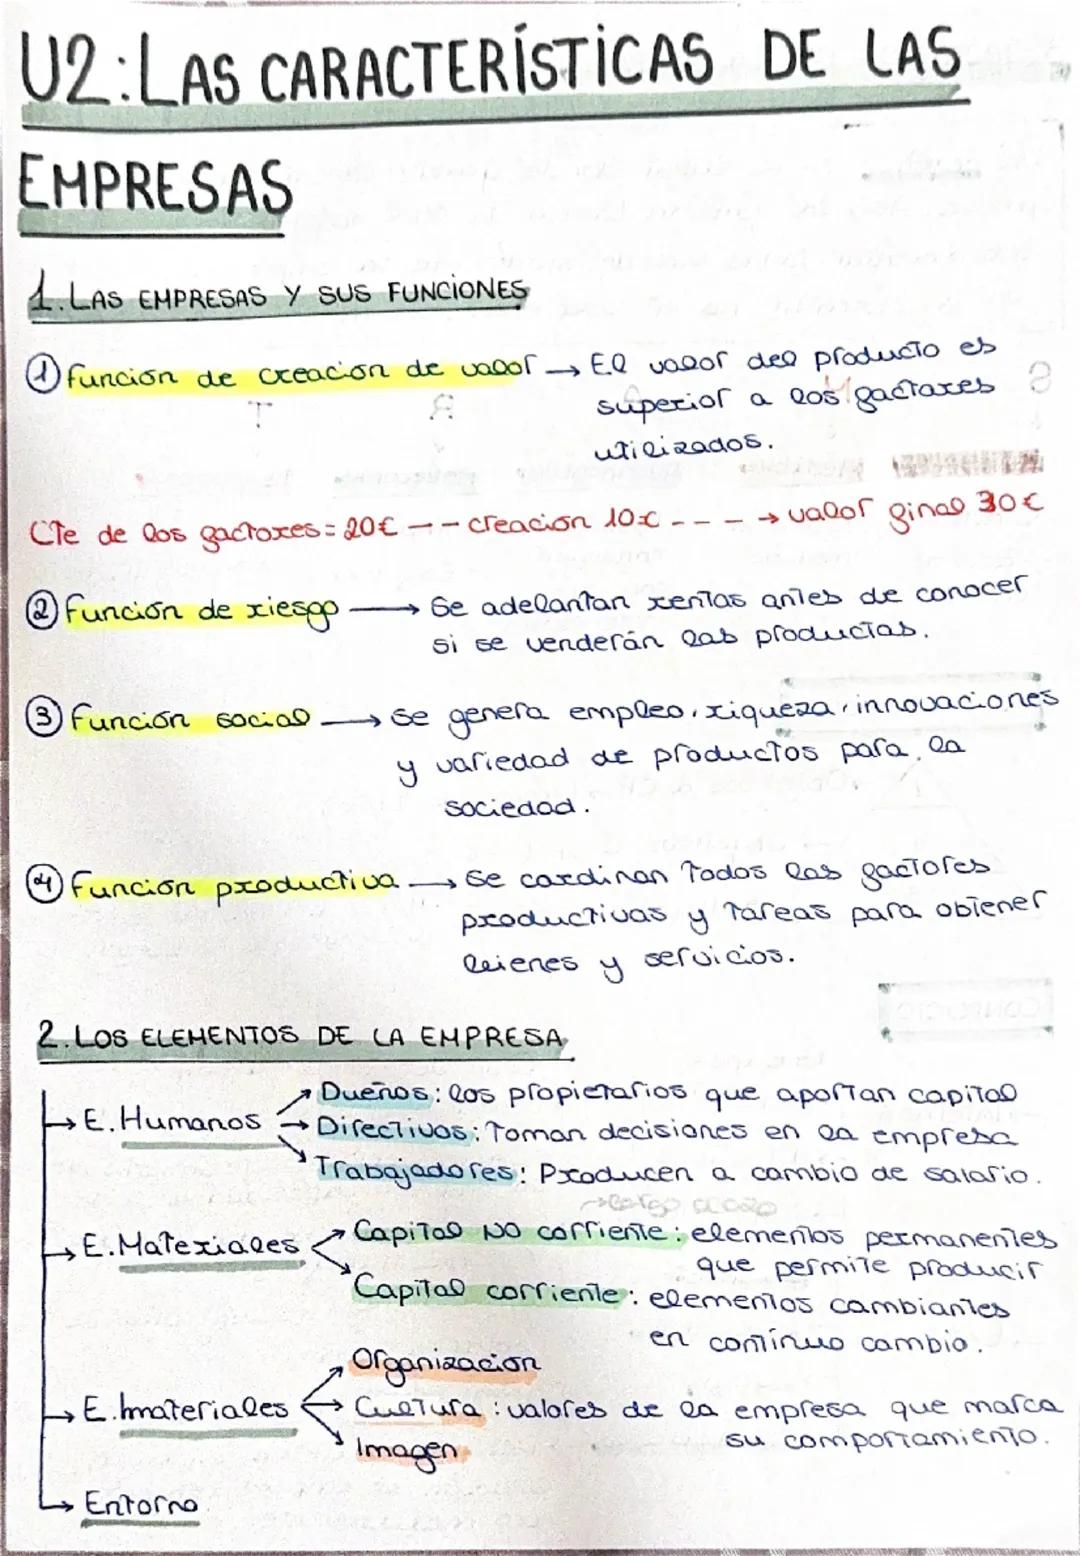 U2: LAS CARACTERÍSTICAS DE LAS
EMPRESAS
1. LAS EMPRESAS Y SUS FUNCIONES
① Función de creación de valor → El valor del producto es
superior a los factores
utilizados.
Cte de los factores = 20€ -- creación 10€ --- → valor final 30€
② Función de riesgo → Se adelantan rentas antes de conocer
si se venderán los productos.
③ Función social → Se genera empleo, riqueza, innovaciones
y variedad de productos para la
sociedad.
④ Función productiva → Se cordinan todos los factores
productivos y tareas para obtener
bienes y servicios.
2. LOS ELEMENTOS DE LA EMPRESA
→ E. Humanos → Dueños: los propietarios que aportan capital
→ Directivos: Toman decisiones en la empresa
→ Trabajadores: Producen a cambio de salario.
→ E. Materiales → Capital NO corriente: elementos permanentes
que permite producir
→ Capital corriente: elementos cambiantes
en contínuo cambio.
→ E. Inmateriales → Organización
→ Cultura: valores de la empresa que marca
su comportamiento.
→ Imagen
→ Entorno